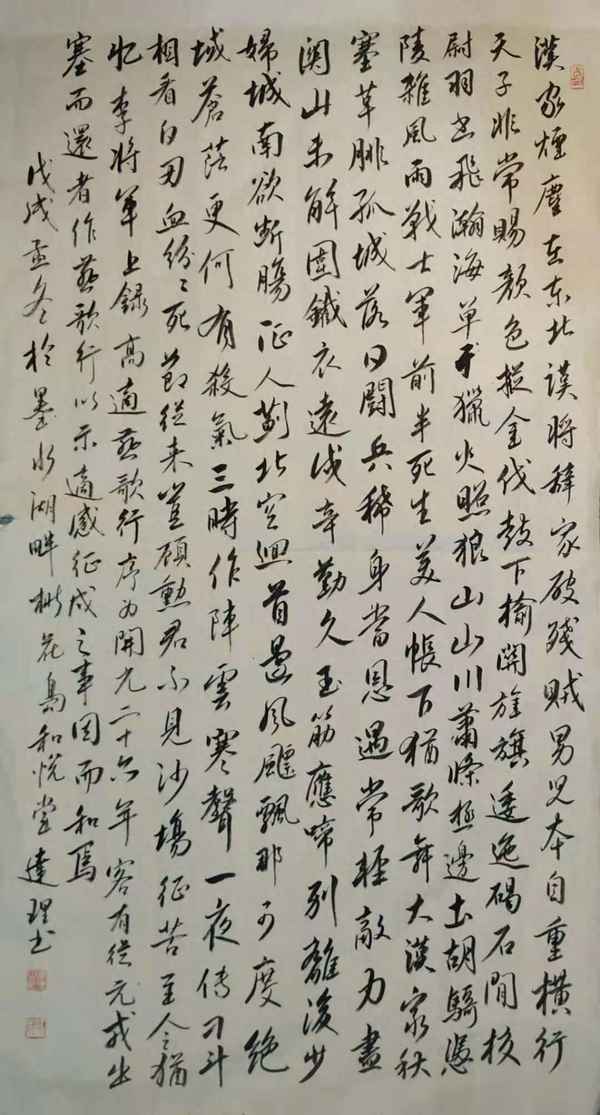 漢家煙塵在東北漢將辭家破殘賊男兒本自重橫行
天子非常賜顏色摐金伐鼓下榆関旌旗逶迤碣石間校
尉羽書飛瀚海單于獵火照狼山山川蕭條極邊土胡騎憑
陵雜風雨戰士軍前半死生美人帳下猶歌舞大漠窮秋
塞草腓孤城落日鬪兵稀身當恩遇常輕敵力盡
関山未解圍鐵衣遠戍辛勤久玉筯應啼別離後少
婦城南欲断腸征人薊北空迴首邊風飄飄那可度絕
域蒼茫更何有殺氣三時作陣雲寒聲一夜傳刁斗
相看白刃血紛〻死節從来豈顧勳君不見沙場征苦至今猶
憶李將軍上錄高適燕歌行序為開元二十六年客有從元戎出
塞而還者作燕歌行以示適感征戍之事因而和焉
戊戌孟冬於墨水湖畔花鳥和悅堂達理書